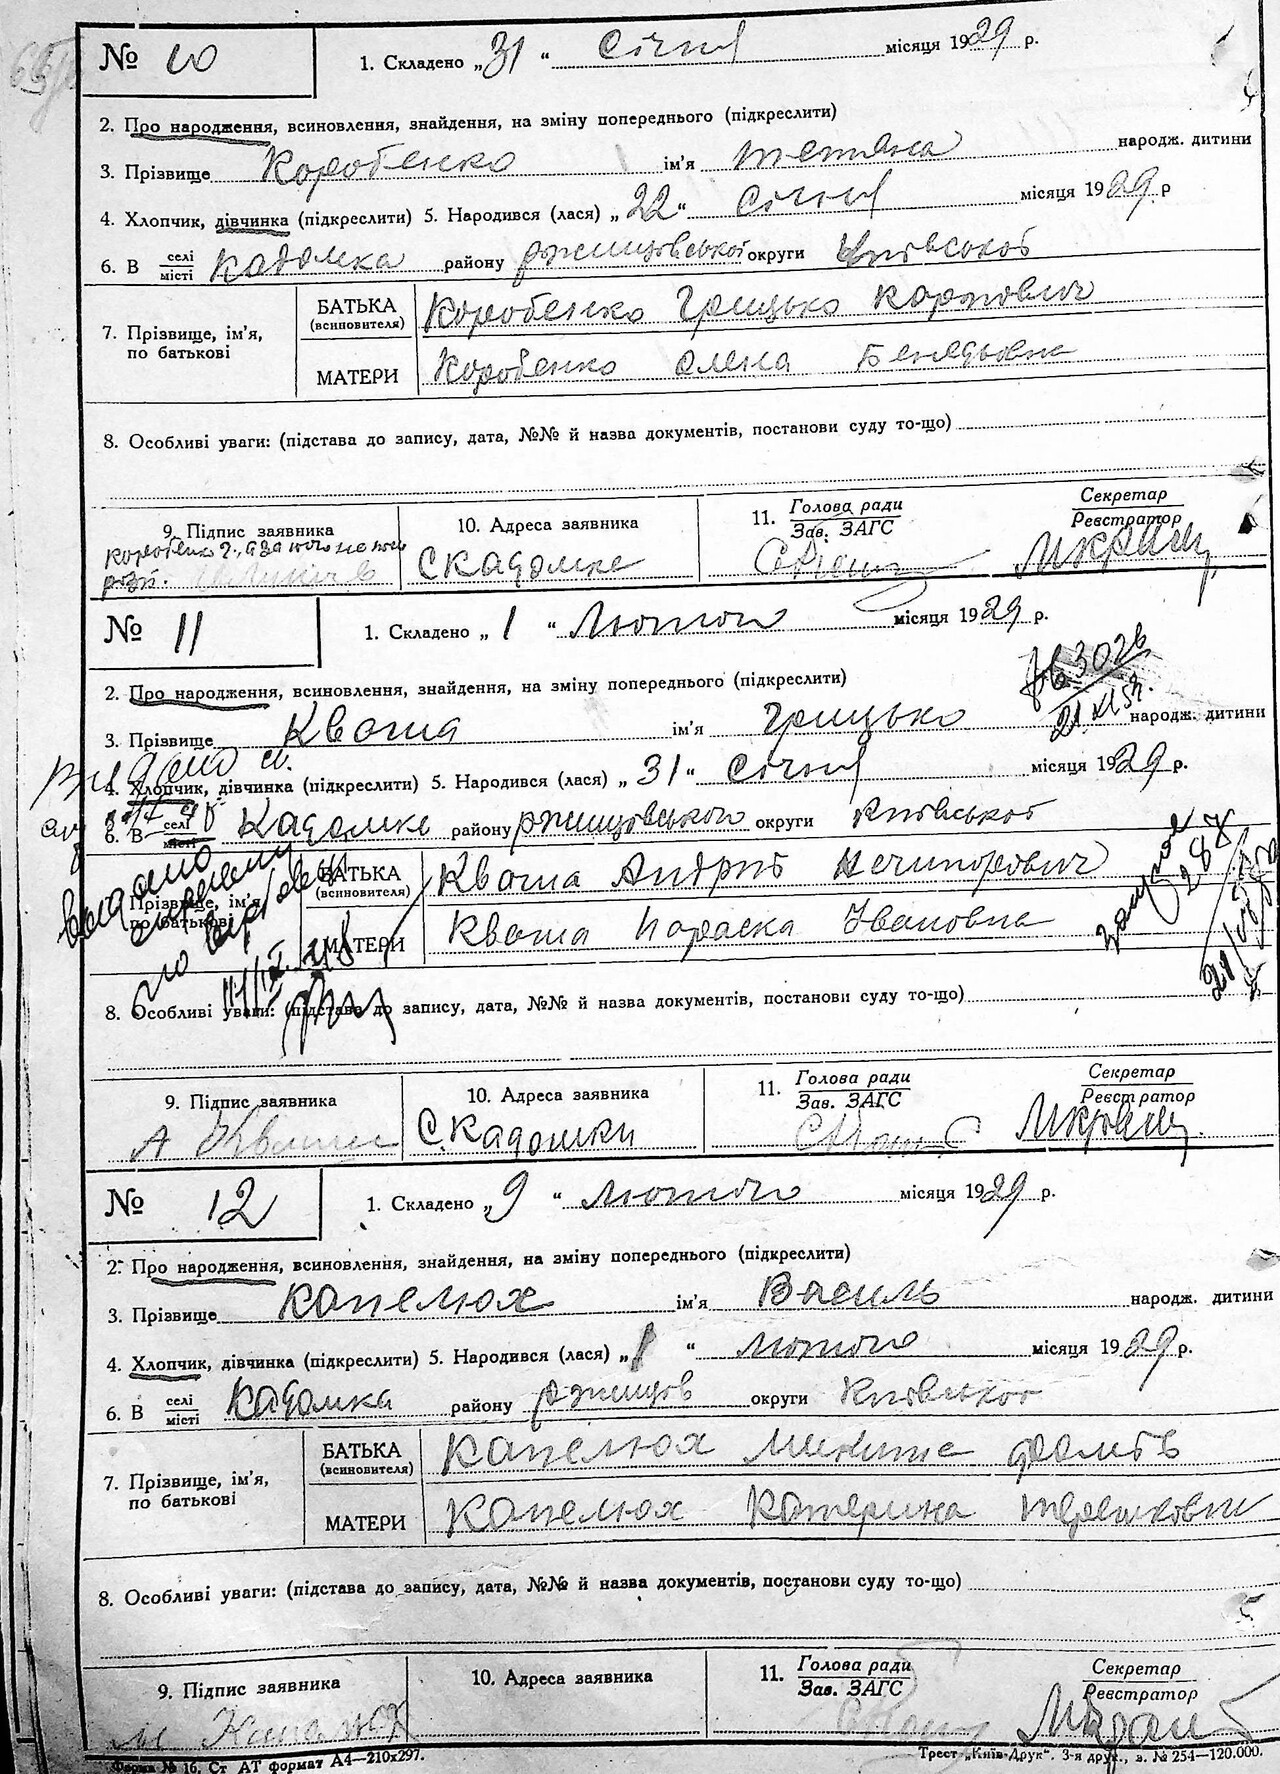 № 10 1. Складено „31“ Січня місяця 1929 р.
2. Про народження, всиновлення, знайдення, на зміну попереднього (підкреслити)
3. Прізвище Коробенко ім'я Тетяна народж. дитини
4. Хлопчик, дівчинка (підкреслити) 5. Народився (лася) „22“ Січня місяця 1929 р
6. В селі/місті Кадомка району Ржищовської округи Київської
7. Прізвище, ім'я, по батькові
БАТЬКА (всиновителя) Коробенко Грицько Карпович
МАТЕРИ Коробенко Олена
8. Особливі уваги: (підстава до запису, дата, №№ й назва документів, постанови суду то-що)
9. Підпис заявника 10. Адреса заявника 11. Голова ради / Зав. ЗАГС Секретар / Реєстратор
Коробенко Г., а за його
розп. С Кадомке
№ 11 1. Складено „1“ Лютого місяця 1929 р.
2. Про народження, всиновлення, знайдення, на зміну попереднього (підкреслити)
3. Прізвище Кваша ім'я Грицько народж. дитини
4. Хлопчик, дівчинка (підкреслити) 5. Народився (лася) „31“ Січня місяця 1929 р.
6. В селі/місті Кадомке району Ржищовського округи Київської
7. Прізвище, ім'я, по батькові
БАТЬКА (всиновителя) Кваша Андрій Нечипорович
МАТЕРИ Кваша Параска Івановна
8. Особливі уваги: (підстава до запису, дата, №№ й назва документів, постанови суду то-що)
9. Підпис заявника 10. Адреса заявника 11. Голова ради / Зав. ЗАГС Секретар / Реєстратор
А Кваша С. Кадомки
№ 12 1. Складено „9“ Лютого місяця 1929 р.
2. Про народження, всиновлення, знайдення, на зміну попереднього (підкреслити)
3. Прізвище Капелюх ім'я Василь народж. дитини
4. Хлопчик, дівчинка (підкреслити) 5. Народився (лася) „8“ Лютого місяця 1929 р.
6. В селі/місті Кадомка району Ржищов округи Київської
7. Прізвище, ім'я, по батькові
БАТЬКА (всиновителя) Капелюх Микита
МАТЕРИ Капелюх Катерина Терешковна
8. Особливі уваги: (підстава до запису, дата, №№ й назва документів, постанови суду то-що)
9. Підпис заявника 10. Адреса заявника 11. Голова ради / Зав. ЗАГС Секретар / Реєстратор
М Капелюх
Форма № 16. Ст АТ формат А4—210х297. Трест „Київ-Друк“. 3-я друк., з. № 254—120.000.